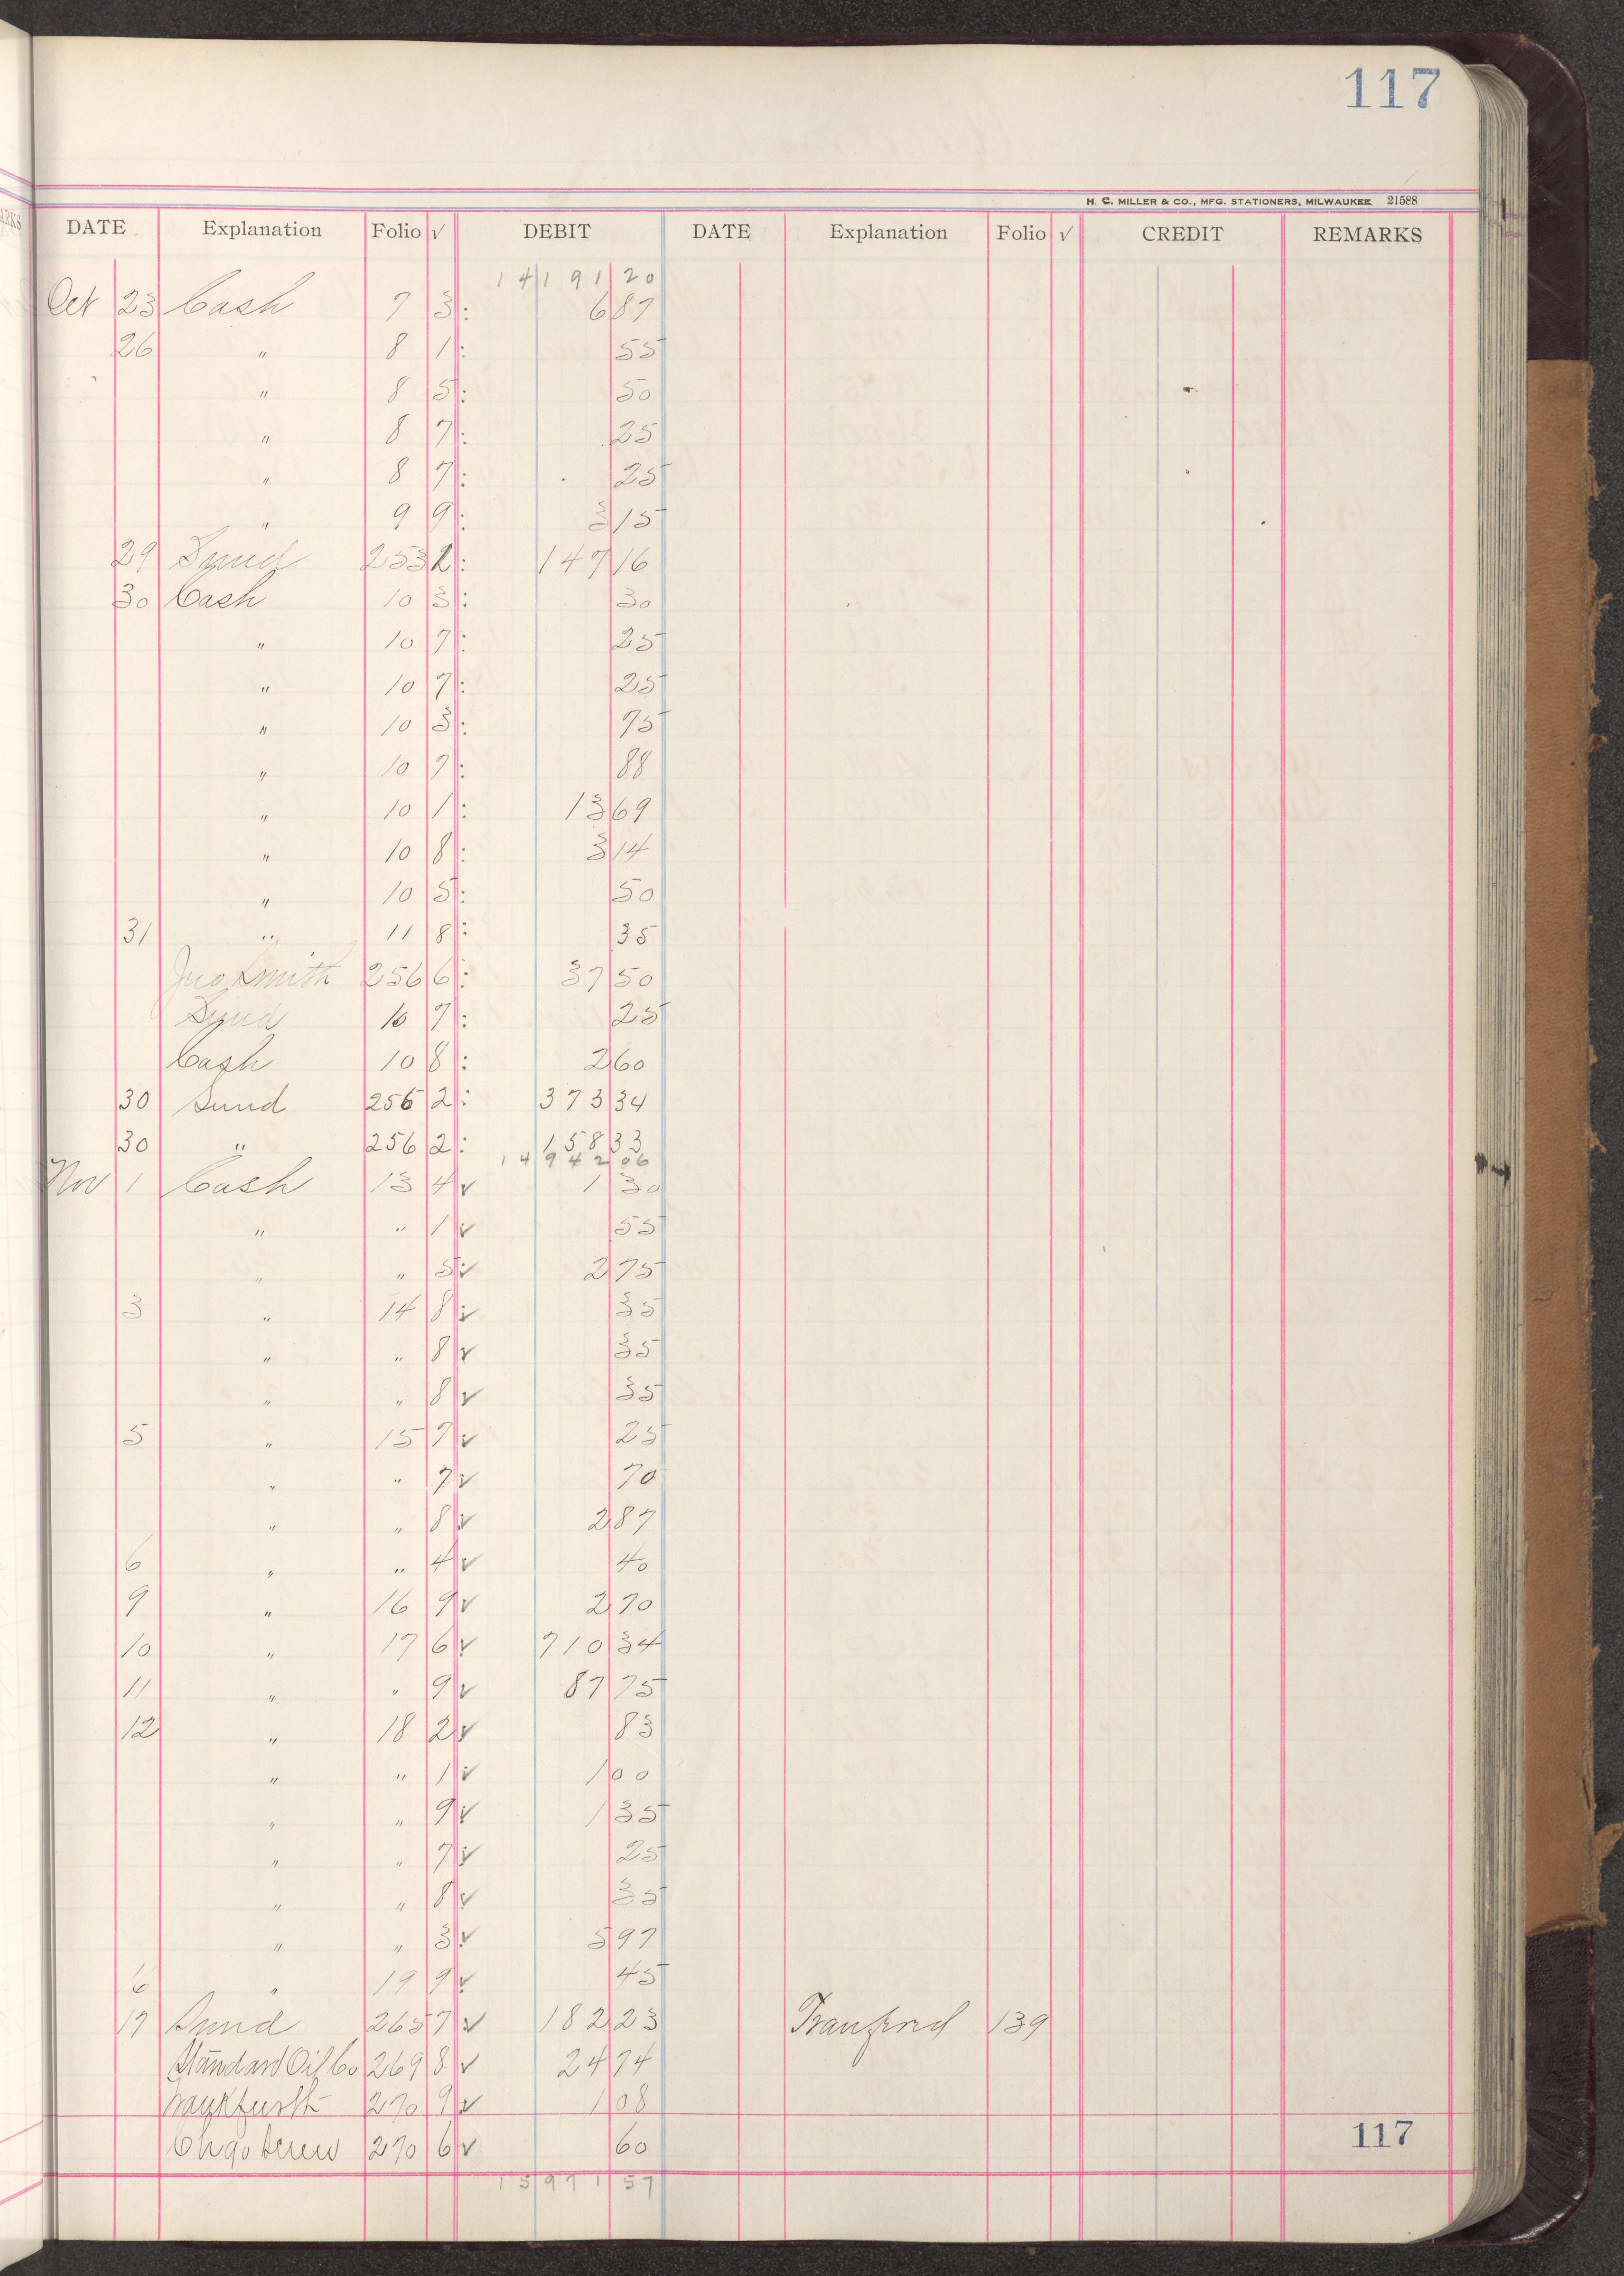 117
H. C. MILLER & CO., MFG. STATIONERS, MILWAUKEE 21588
ARKS
DATE Explanation Folio √ DEBIT DATE Explanation Folio √ CREDIT REMARKS
14191 20
Oct 23 Cash 7 3 : 6 87
26 " 8 1 : 55
" 8 5 : 50
" 8 7 : 25
" 8 7 : 25
" 9 9 : 3 15
29 Synd 253 2 : 147 16
30 Cash 10 3 : 30
" 10 7 : 25
" 10 7 : 25
" 10 3 : 75
" 10 7 : 88
" 10 1 : 13 69
" 10 8 : 3 14
" 10 5 : 50
31 " 11 8 : 35
Jno Smith 256 6 : 37 50
Synd 10 7 : 25
Cash 10 8 : 2 60
30 Sund 256 2 : 373 34
30 " 256 2 : 158 33
14942 06
Nov 1 Cash 13 4 √ 1 30
" " 1 √ 55
" " 5 √ 2 75
3 " 14 8 √ 35
" " 8 √ 35
" " 8 √ 35
5 " 15 7 √ 25
" " 7 √ 70
" " 8 √ 2 87
6 " " 4 √ 40
9 " 16 9 √ 2 70
10 " 17 6 √ 710 34
11 " " 9 √ 87 75
12 " 18 2 √ 83
" " 1 √ 1 00
" " 9 √ 1 35
" " 7 √ 25
" " 8 √ 35
" " 3 √ 5 97
6 " 19 9 √ 45
17 Sund 265 7 √ 182 23 Tranfrd 139
Standard Oil Co 269 8 √ 24 74
270 9 √ 1 08
Chgo 270 6 √ 60
117
15971 57